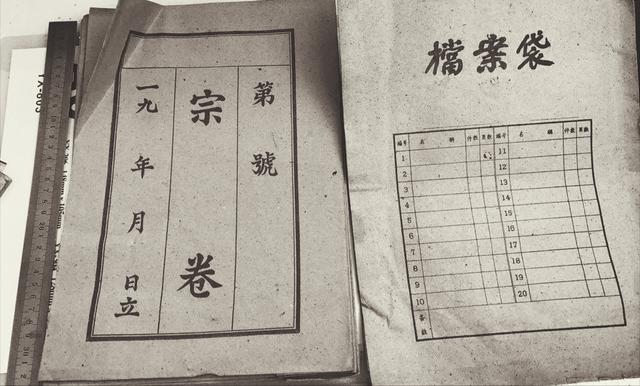 第 號
宗 卷
一九 年 月 日立
檔案袋
編號 名 稱 件數 頁數 編號 名 稱 件數 頁數
1 11
2 12
3 13
4 14
5 15
6 16
7 17
8 18
9 19
10 20